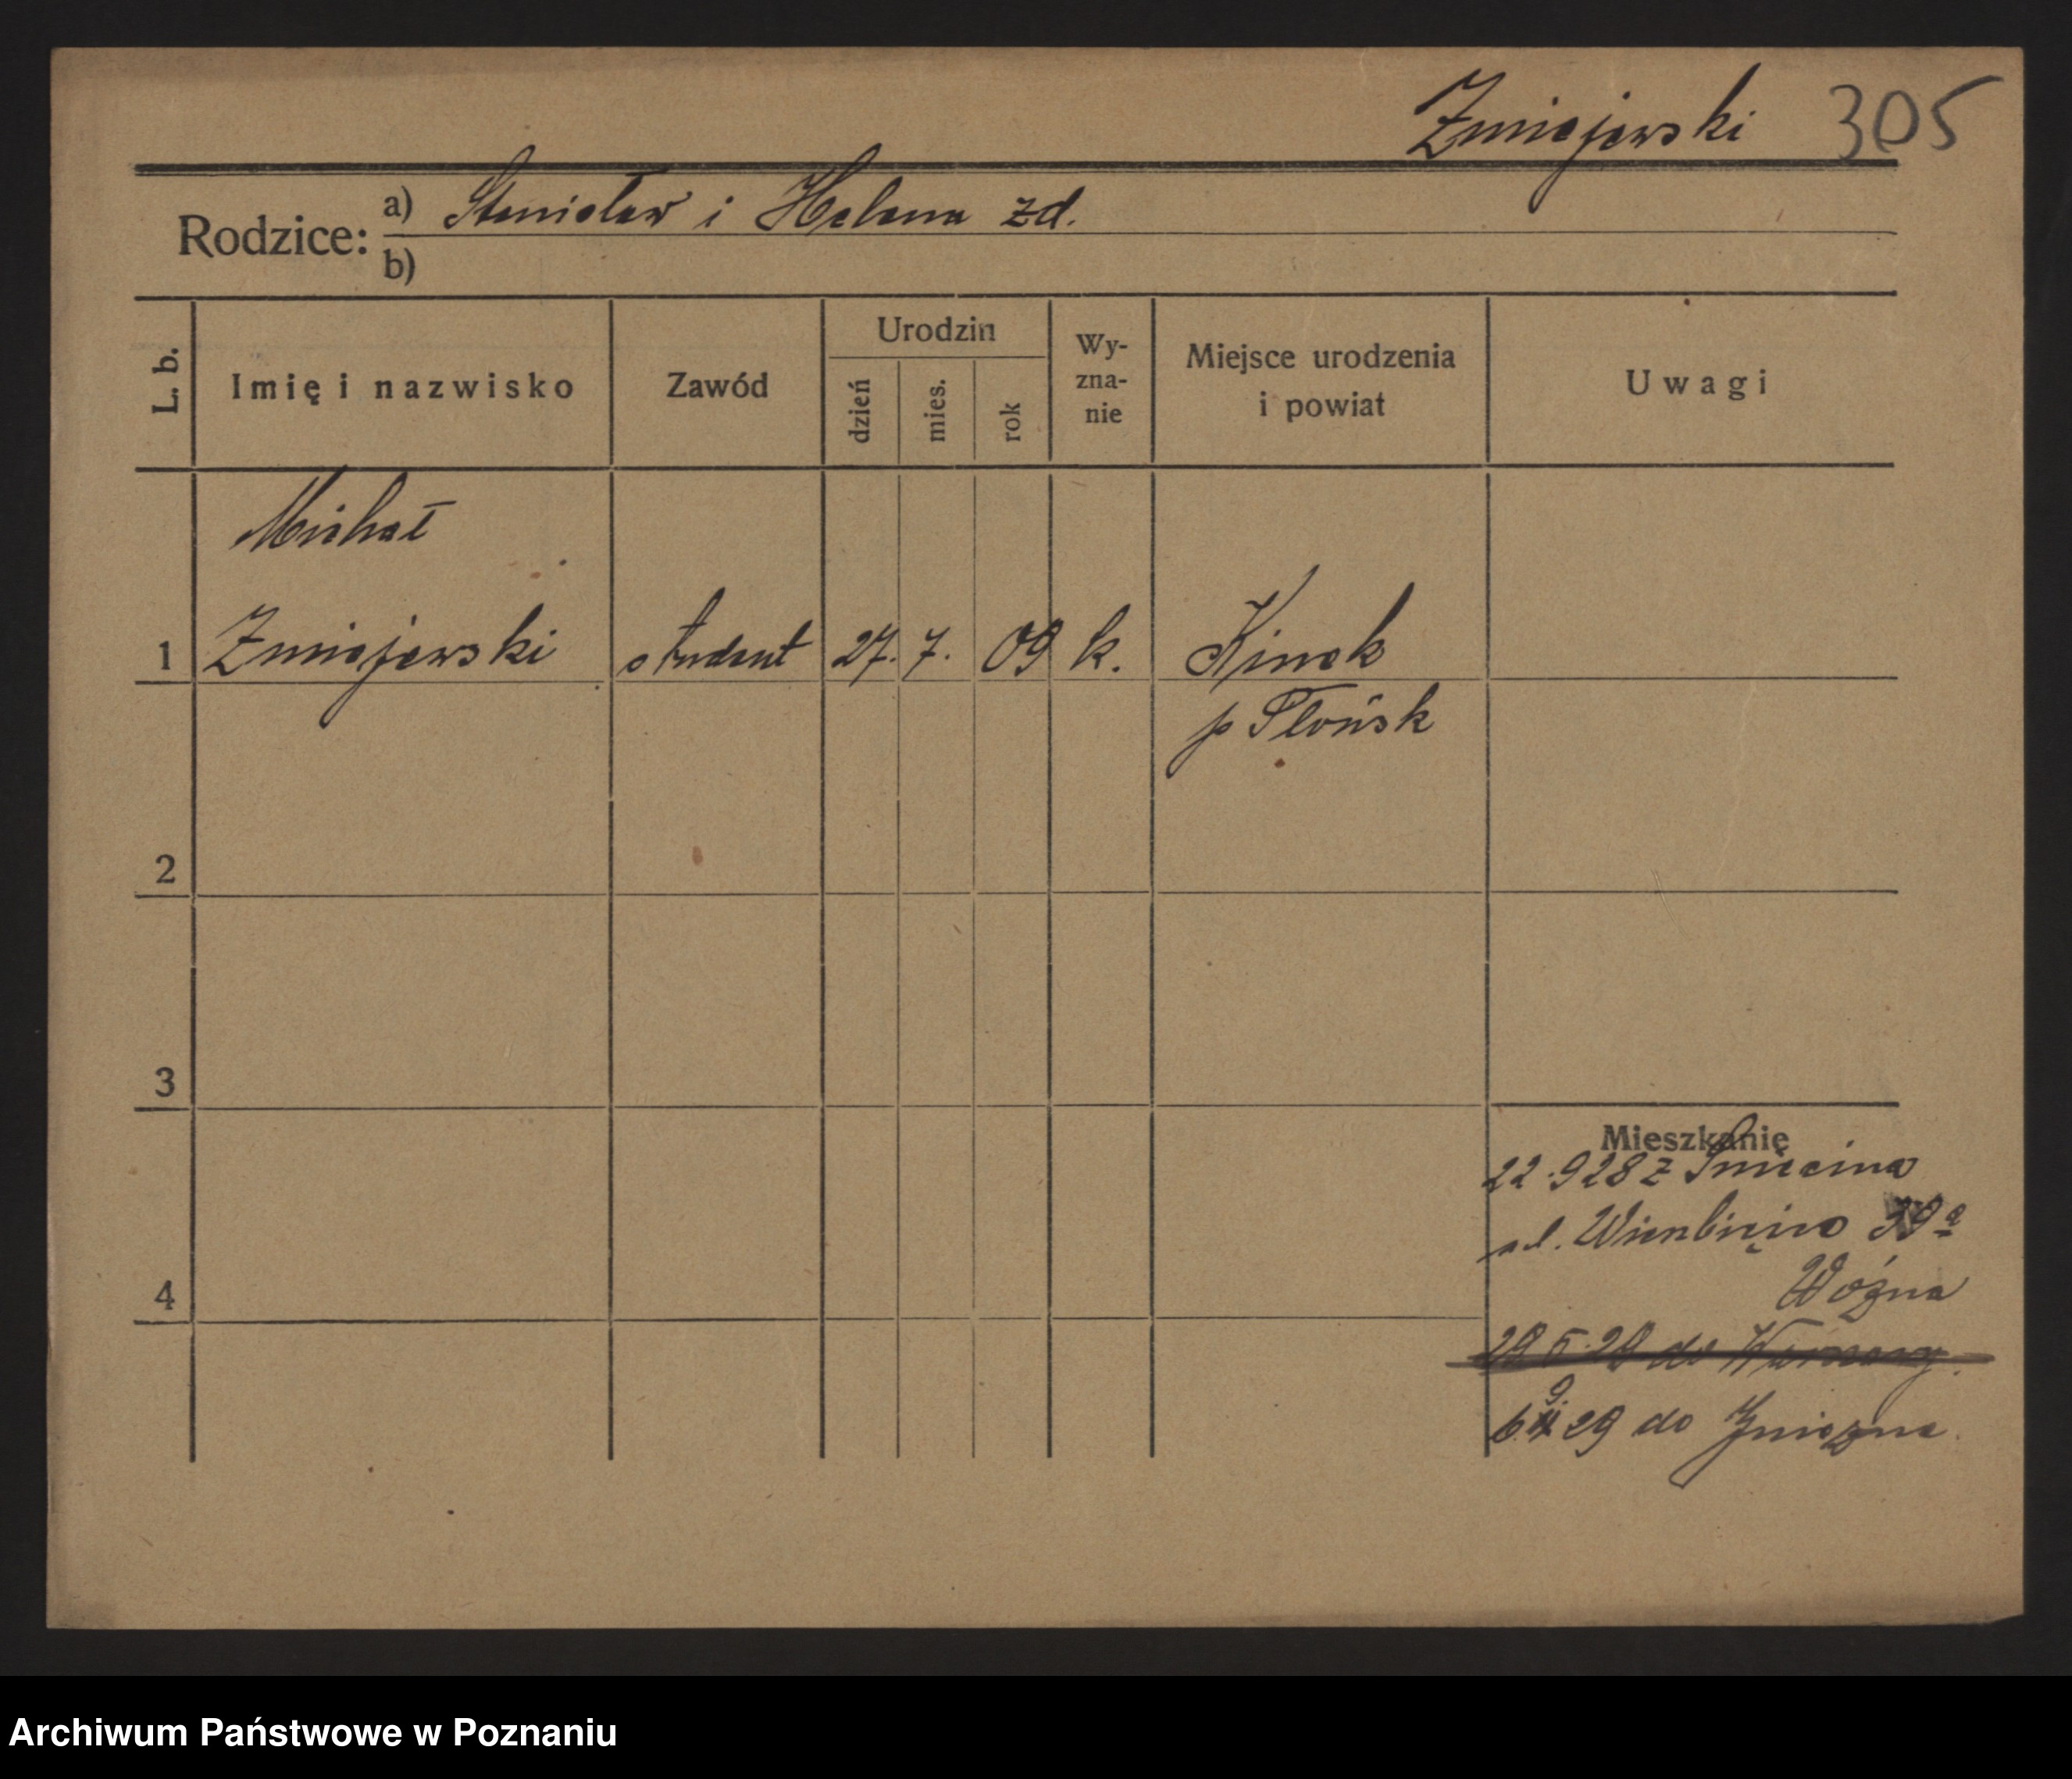 Zmiejewski 305
Rodzice: a) Stanisław i Helena zd.
b)
L. b. Imię i nazwisko Zawód Urodzin dzień mies. rok Wy-zna-nie Miejsce urodzenia i powiat Uwagi
Michał
1 Zmiejewski student 27. 7. 09 k. Kinek
p Płońsk
2
3
Mieszkanię
22.928 z
ul. 39a
4 Woźna
29 5. 29 do Warszawy.
6 9. 29 do Gniezna.
Archiwum Państwowe w Poznaniu